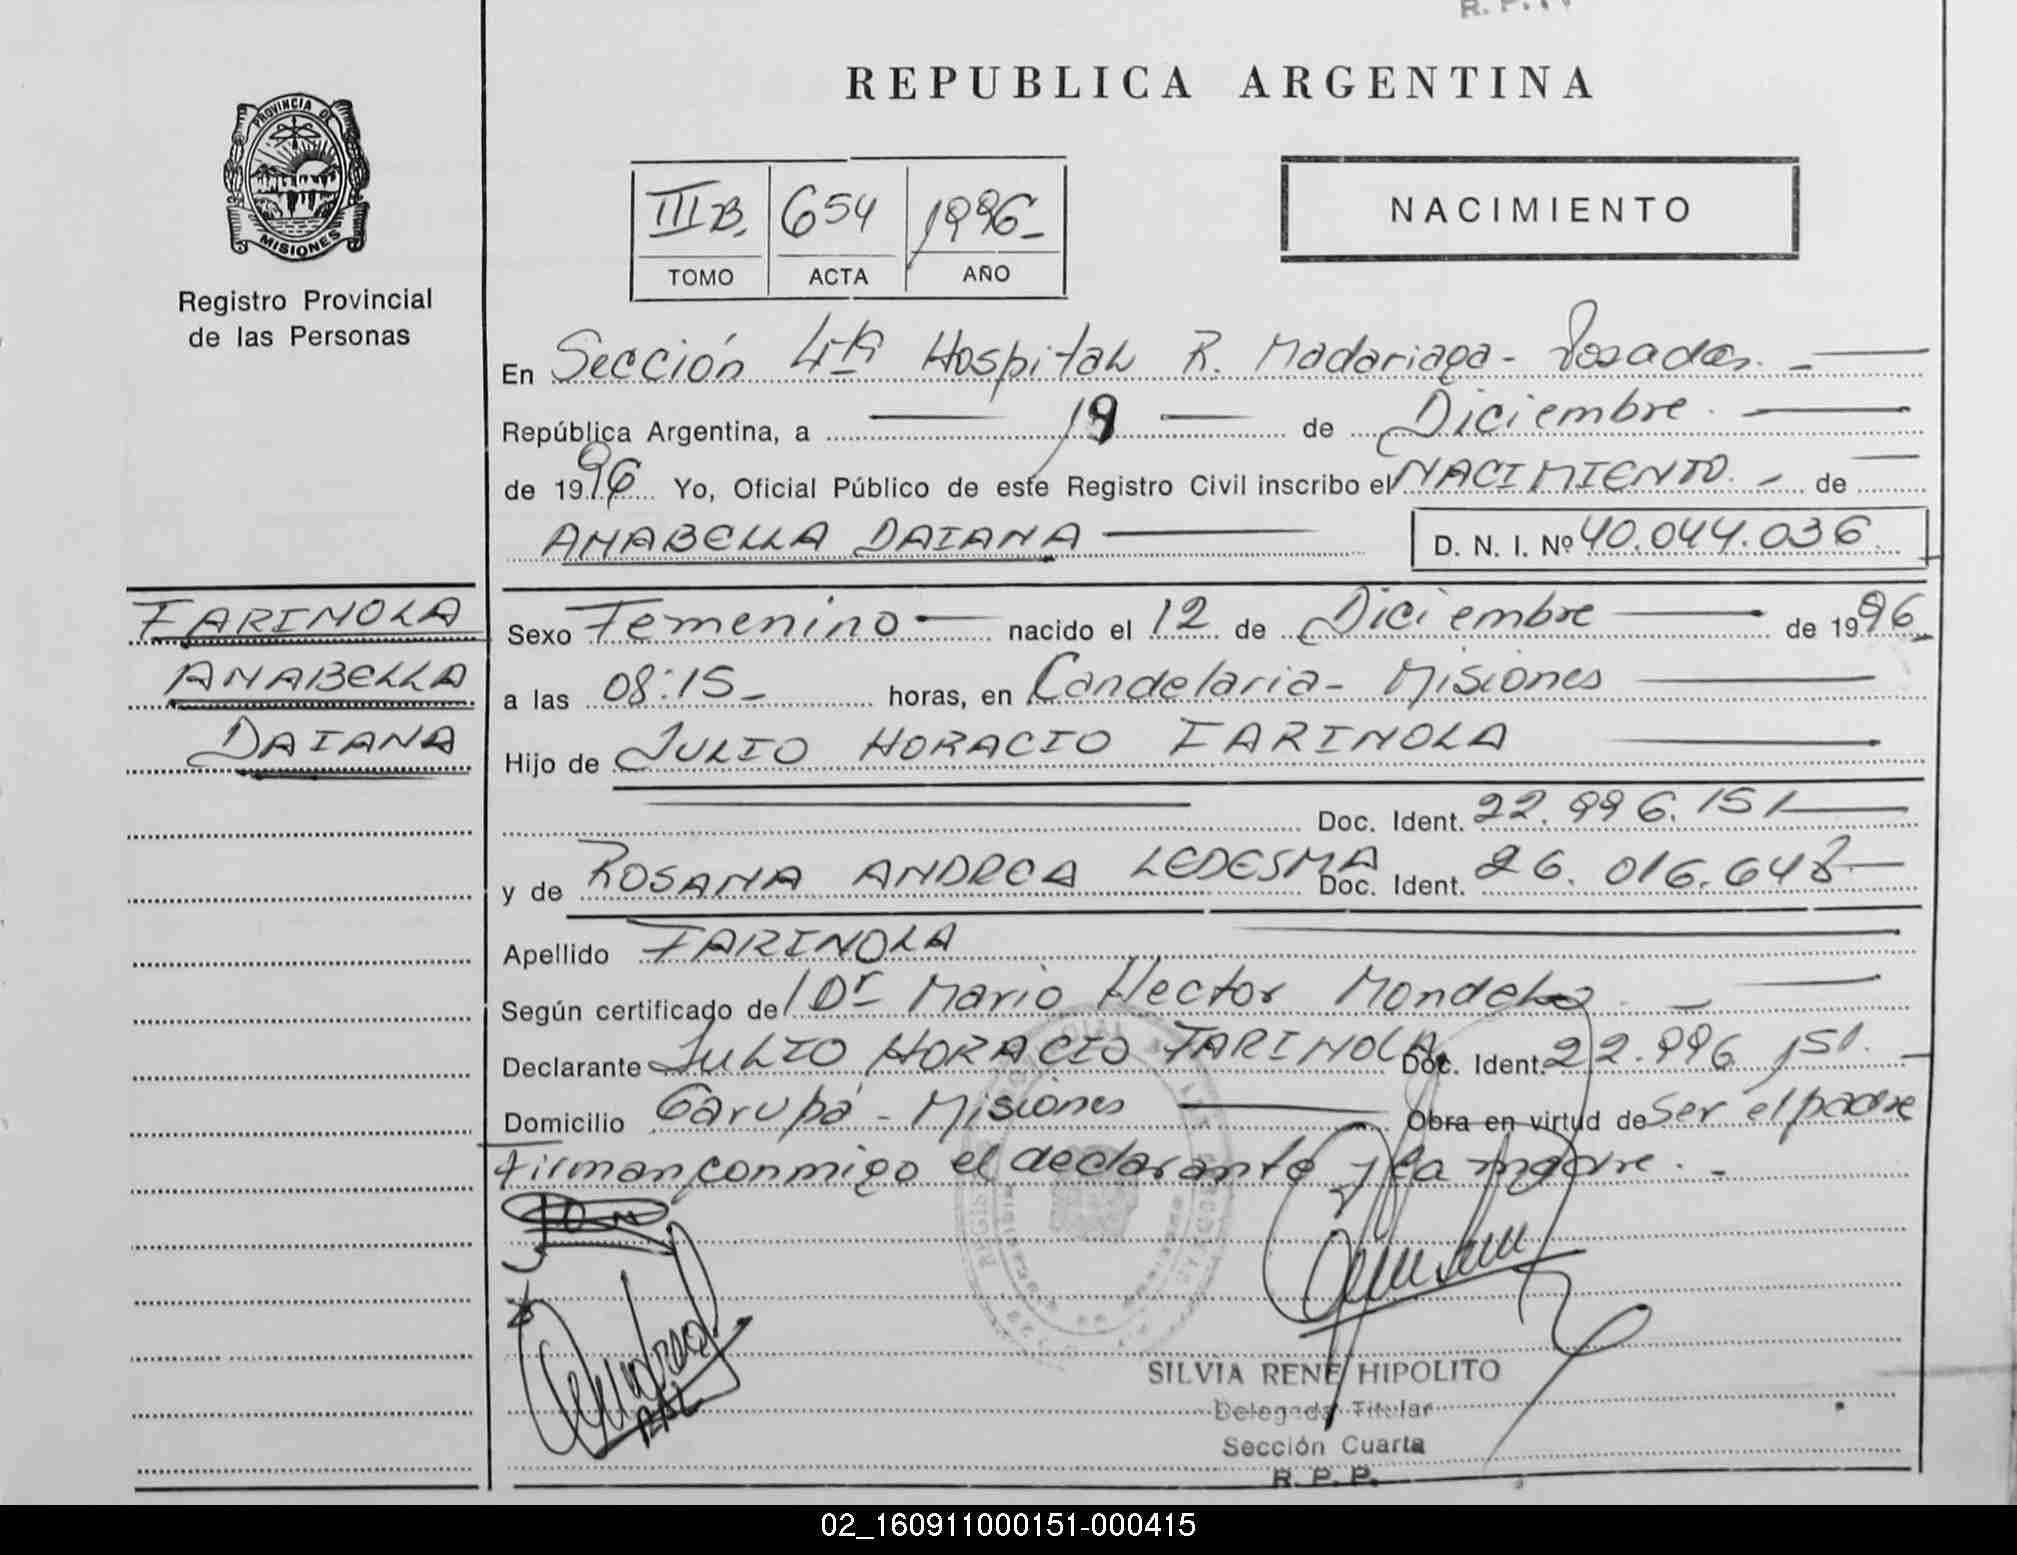 R. P. P.
REPUBLICA ARGENTINA
PROVINCIA DE
MISIONES
Registro Provincial
de las Personas
III B. 654 1996
TOMO ACTA AÑO
NACIMIENTO
En Sección 4ta Hospital R. Madariaga - Posadas. -
República Argentina, a 19 de Diciembre.
de 1996 Yo, Oficial Público de este Registro Civil inscribo el NACIMIENTO. - de
ANABELLA DAIANA D. N. I. Nº 40.044.036
FARINOLA
ANABELLA
DAIANA
Sexo Femenino - nacido el 12 de Diciembre de 1996
a las 08:15 - horas, en Candelaria - Misiones
Hijo de JULIO HORACIO FARINOLA
Doc. Ident. 22.996.151
y de ROSANA ANDREA LEDESMA Doc. Ident. 26.016.648
Apellido FARINOLA
Según certificado de Dr Mario Hector Mondelo. -
Declarante JULIO HORACIO FARINOLA Doc. Ident. 22.996.151. -
Domicilio Garupá - Misiones Obra en virtud de Ser el padre
Firman conmigo el declarante y la madre. -
SILVIA RENE HIPOLITO
Delegada Titular
Sección Cuarta
R. P. P.
02_160911000151-000415